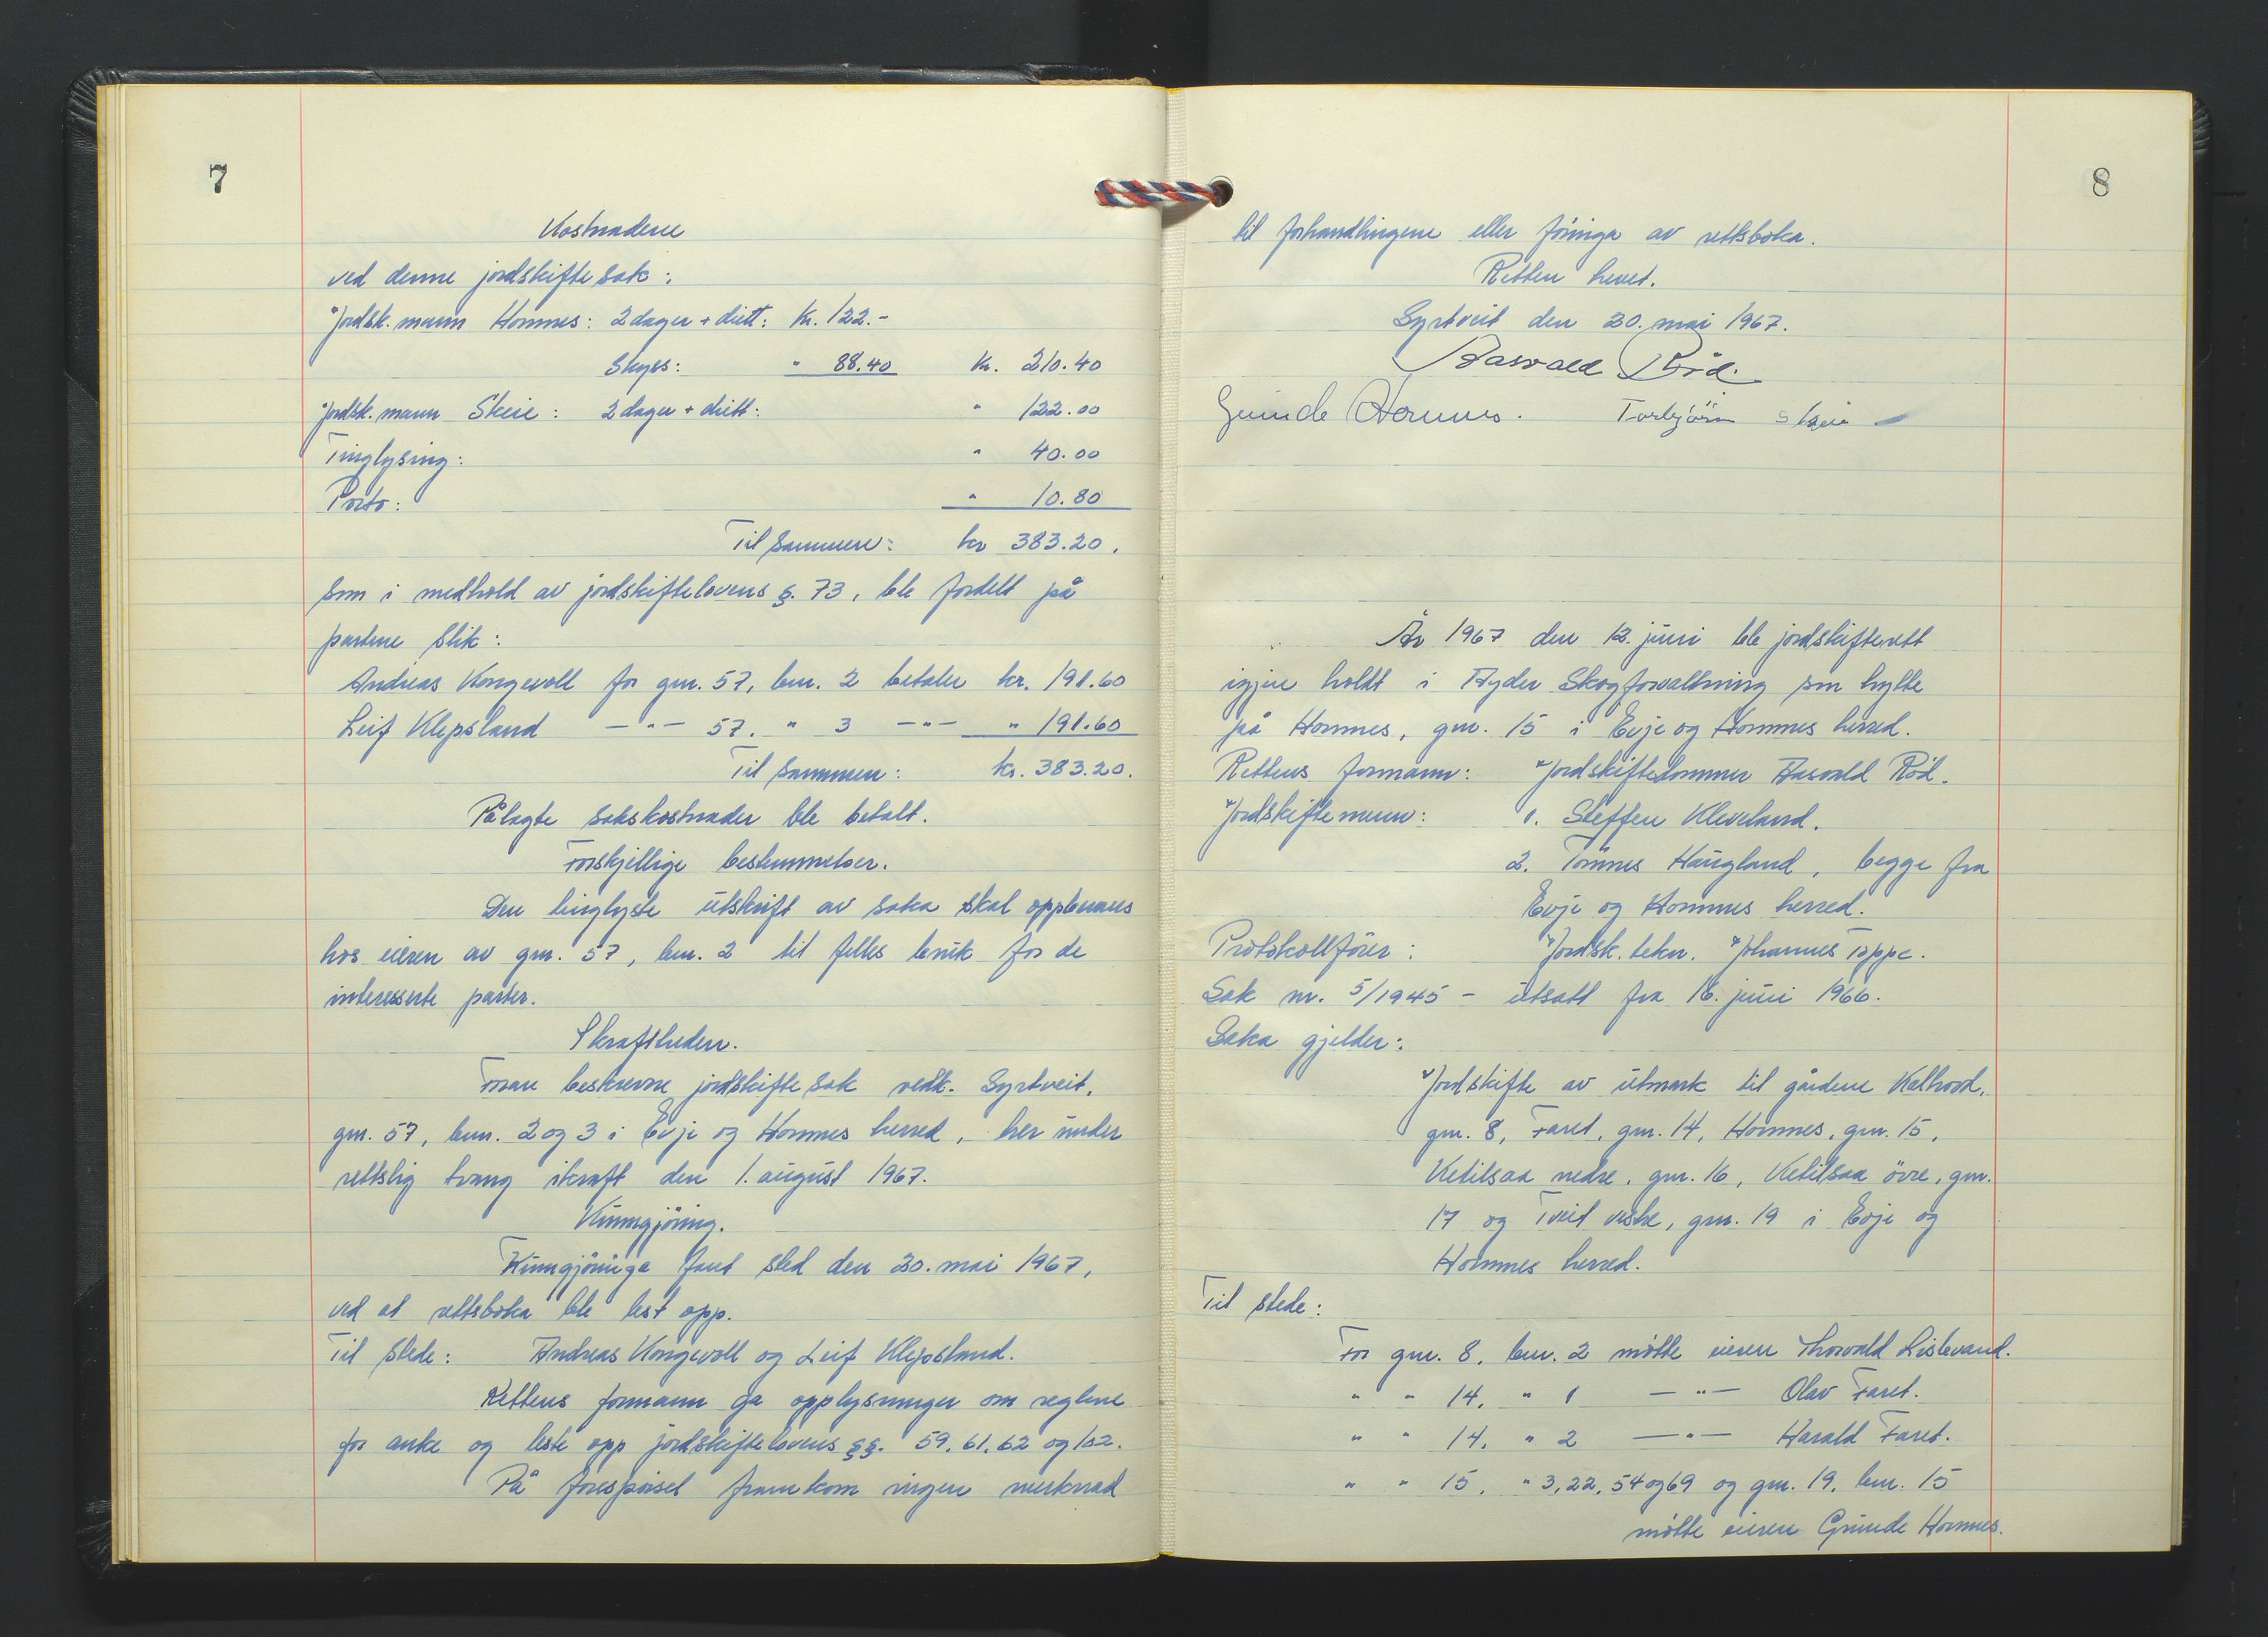 7
Kostnadene
ved denne jordskiftesak:
Jordsk.mann Hornnes: 2 dager + diett: Kr. 122.-
Skyss: " 88.40 Kr. 210.40
Jordsk.mann Skeie: 2 dager + diett: " 122.00
Tinglysing: " 40.00
Porto: " 10.80
Til sammen: kr 383.20.
som i medhold av jordskiftelovens §. 73, ble fordelt på
partene slik:
Andreas Kongevoll for gnr. 57, bnr. 2 betaler kr. 191.60
Leif Klepsland —"— 57. " 3 —"— " 191.60
Til sammen: kr. 383.20.
Pålagte sakskostnader ble betalt.
Forskjellige bestemmelser.
Den tinglyste utskrift av saka skal oppbevares
hos eieren av gnr. 57, bnr. 2 til felles bruk for de
interesserte parter.
Ikrafttreden.
Foran beskrevne jordskiftesak vedk. Syrtveit,
gnr. 57, bnr. 2 og 3 i Evje og Hornnes herred, trer under
rettslig tvang ikraft den 1. august 1967.
Kunngjøring.
Kunngjøringa fant sted den 30. mai 1967,
ved at rettsboka ble lest opp.
Til stede: Andreas Kongevoll og Leif Klepsland.
Rettens formann ga opplysninger om reglene
for anke og leste opp jordskiftelovens §§. 59, 61, 62 og 102.
På forespørsel framkom ingen merknad
8
til forhandlingene eller føringa av rettsboka.
Retten hevet.
Syrtveit den 30. mai 1967.
Aasvald Röd.
Gunde Hornnes. Torbjörn Skeie
År 1967 den 12. juni ble jordskifterett
igjen holdt i Agder Skogforvaltning sin hytte
på Hornnes, gnr. 15 i Evje og Hornnes herred.
Rettens formann: Jordskiftedommer Aasvald Röd.
Jordskiftemenn: 1. Steffen Kleveland.
2. Tønnes Haugland, begge fra
Evje og Hornnes herred.
Protokollfører: Jordsk.tekn. Johannes Toppe.
Sak nr. 5/1945 - utsatt fra 16. juni 1966.
Saka gjelder:
Jordskifte av utmark til gårdene Kalhovd,
gnr. 8, Faret, gnr. 14, Hornnes, gnr. 15,
Ketilsaa nedre, gnr. 16, Ketilsaa övre, gnr.
17 og Tveit vestre, gnr. 19 i Evje og
Hornnes herred.
Til stede:
For gnr. 8, bnr. 2 møtte eieren Thorvald Lislevand.
" " 14, " 1 —"— Olav Faret.
" " 14, " 2 —"— Harald Faret.
" " 15, " 3, 22, 54 og 69 og gnr. 19, bnr. 15
møtte eieren Gunde Hornnes.